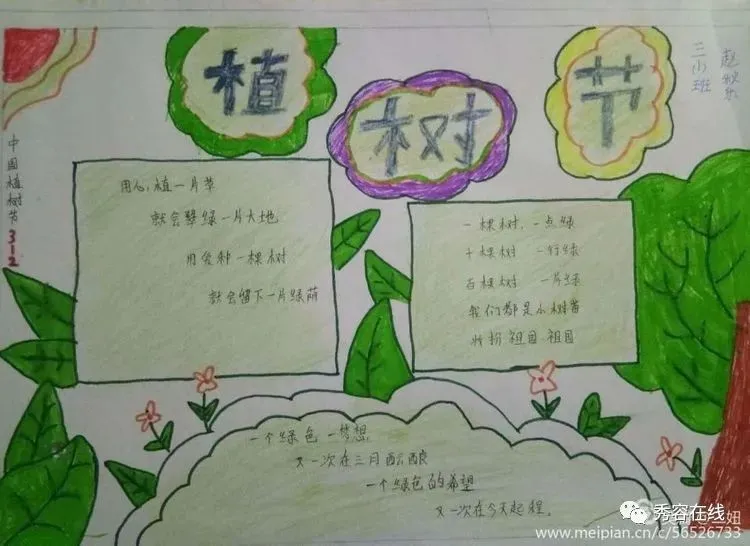 植树节
三小班
中国植树节
312
用心,植一片草
就会翠绿一片大地
用爱种一棵树
就会留下一片绿荫
一棵树,一点绿
十棵树 一行绿
百棵树 一片绿
我们都是小树苗
妆扮祖国 祖国
一个绿色 一梦想
又一次在三月酝酿
一个绿色的希望
又一次在今天起程.
秀容在线
www.meipian.cn/c/56526733